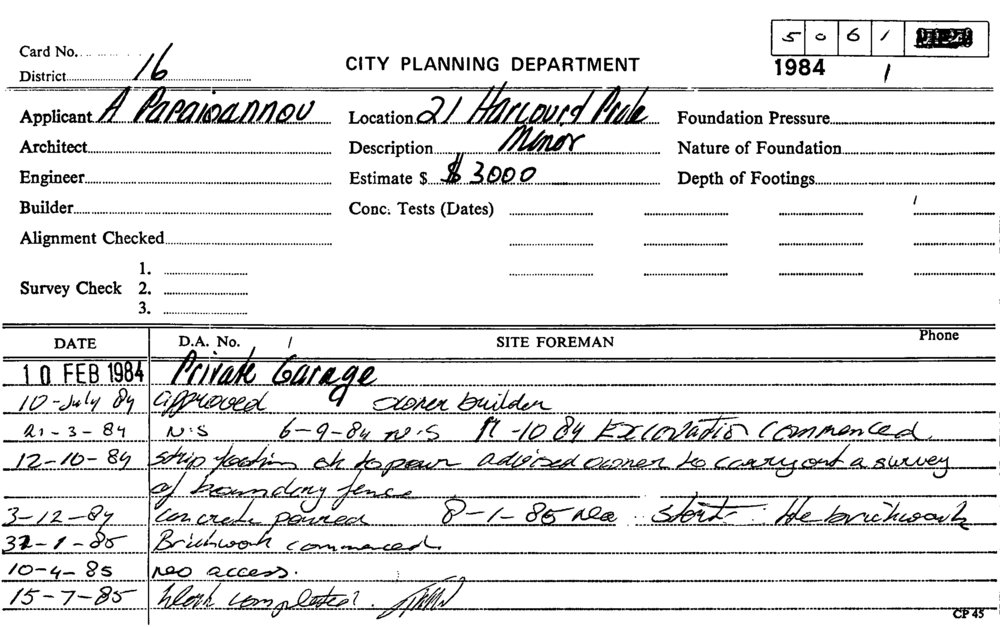 Card No.
5 0 6 1
District 16
CITY PLANNING DEPARTMENT
1984 1
Applicant A Papaioannou Location 21 Harcourt Pde Foundation Pressure
Architect Description Minor Nature of Foundation
Engineer Estimate $ $ 3000 Depth of Footings
Builder Conc. Tests (Dates)
Alignment Checked
1.
Survey Check 2.
3.
DATE D.A. No. SITE FOREMAN Phone
10 FEB 1984 Private Garage
10-July 84 approved owner builder
21-3-84 N.S 6-9-84 N.S 11-10 84 Excavation commenced
12-10-84 strip footing ok to pour advised owner to carry out a survey
of boundary fence
3-12-84 concrete poured 8-1-85 neo start the brickwork
31-1-85 Brickwork commenced
10-4-85 no access.
15-7-85 Work completed.
CP 45